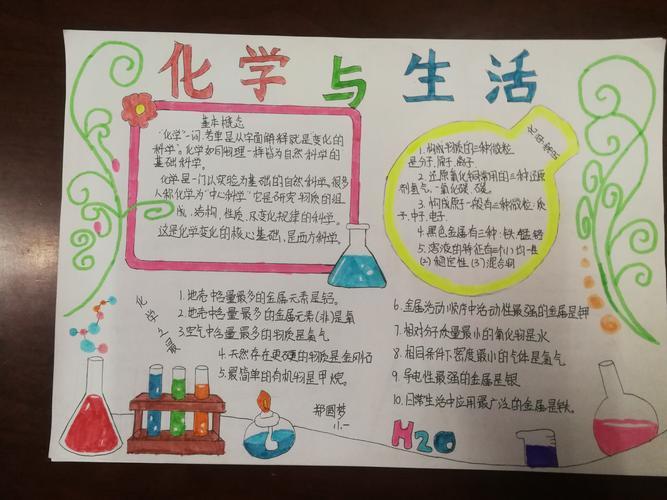 化学与生活
基本概念
"化学"一词,若单是从字面解释就是变化的
科学。化学如同物理一样皆为自然科学的
基础科学。
化学是一门以实验为基础的自然科学。很多
人称化学为"中心科学"它是研究物质的组
成,结构,性质,以及变化规律的科学。
这是化学变化的核心基础,是西方科学。
1.构成物质的三种微粒
是分子,原子,离子
2.还原氧化铜常用的三种还原
剂氢气、一氧化碳、碳。
3.构成原子一般有三种微粒:质
子,中子,电子
4.黑色金属有三种:铁、锰、铬
5.溶液的特征有三个(1)均一性
(2)稳定性(3)混合物
化学之最
1.地壳中含量最多的金属元素是铝。
2.地壳中含量最多的金属元素(非)是氧
3.空气中含量最多的物质是氮气
4.天然存在最硬的物质是金刚石
5.最简单的有机物是甲烷。
6.金属活动顺序中活动性最强的金属是钾
7.相对分子质量最小的氧化物是水
8.相同条件下密度最小的气体是氢气
9.导电性最强的金属是银
10.日常生活中应用最广泛的金属是铁。
郑圆梦
H2O